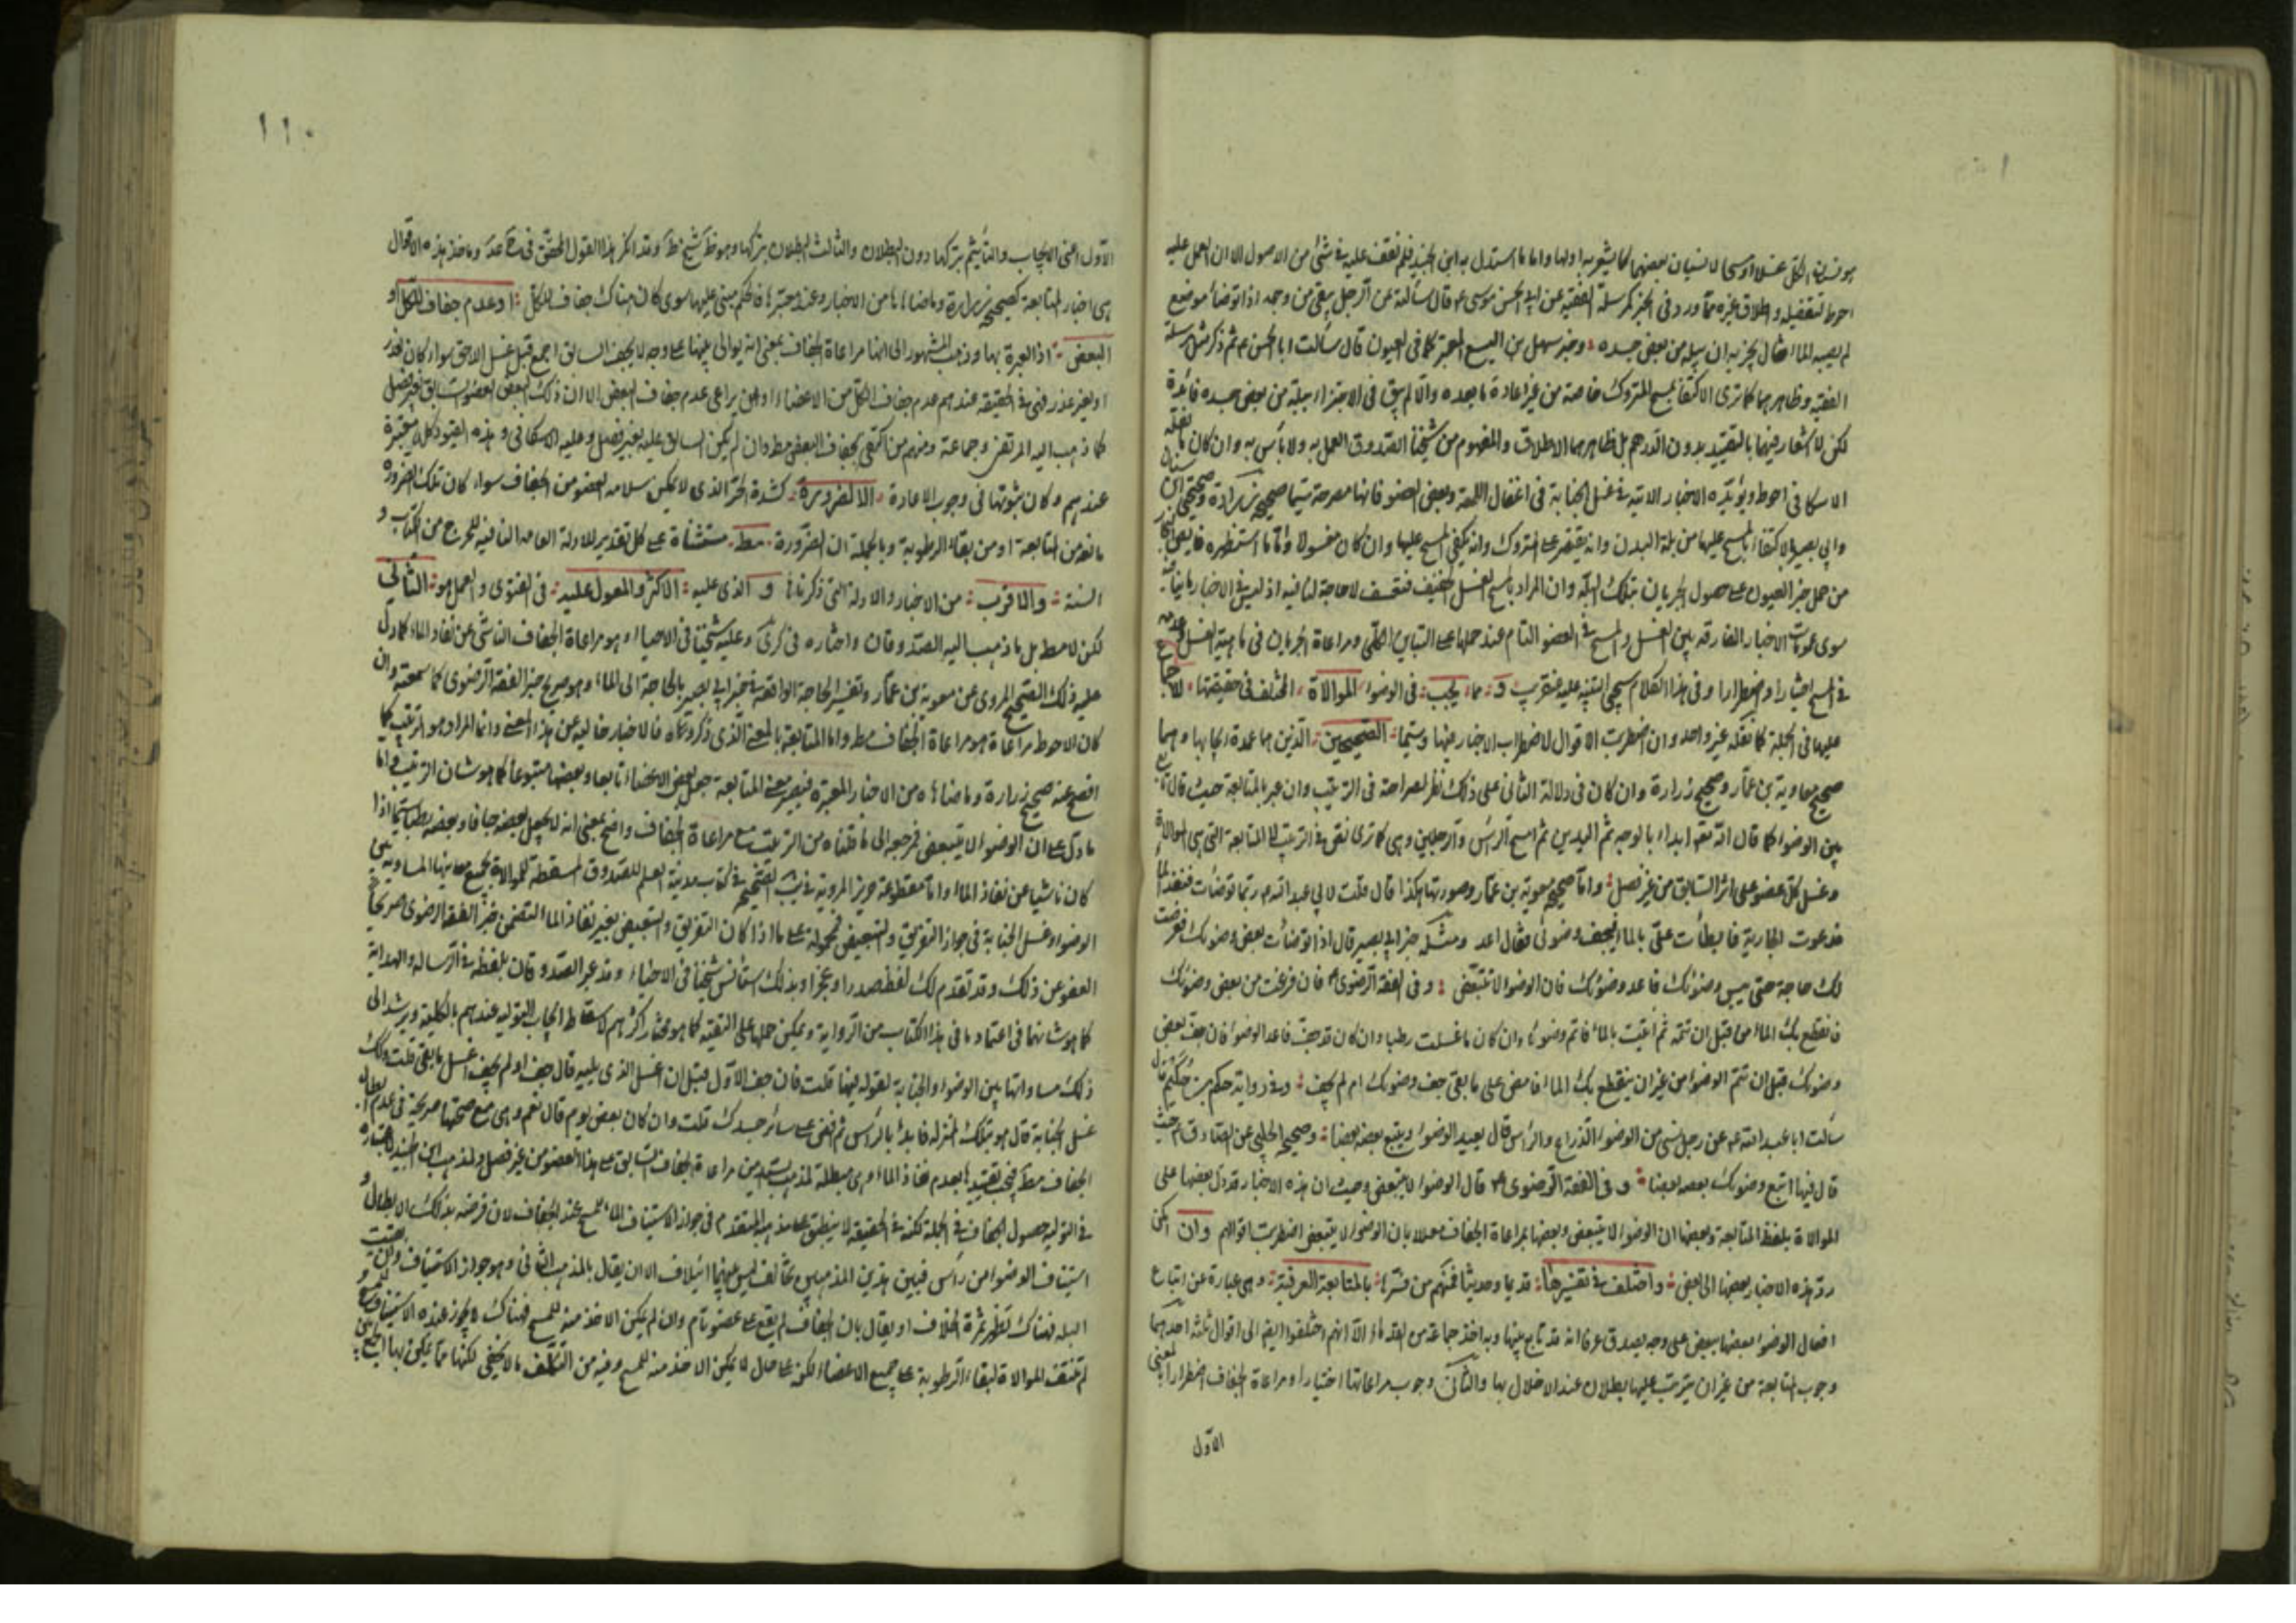 هو نسيان الكل غسلا او مسحا لا نسيان بعضهما كما يشعر به اولها واما ما استدل به ابن الجنيد فلم نقف عليه في شئ من الاصول الا ان العمل عليه
احوط لتفضيله واطلاق غيره مما ورد في الخبر كمرسلة الفقيه عن ابي الحسن موسى ع قال سألته عن الرجل يبقى من وجهه اذا توضأ موضع
لم يصبه الماء فقال يجزيه ان يبله من بعض جسده وخبر سهل بن اليسع المعتبر كما في العيون قال سألت ابا الحسن ع ثم ذكر مثل مرسلة
الفقيه وظاهرهما كما ترى الاكتفاء بمسح المتروك خاصة من غير اعادة ما بعده والا لم يبق في الاجتزاء ببلة من بعض جسده فائدة
لكن لا اشعار فيهما بالتقييد بدون الدرهم بل ظاهرهما الاطلاق والمفهوم من شيخنا الصدوق العمل به ولا بأس به وان كان ما نقله
الاسكافي احوط ويؤيده الاخبار الاتية في غسل الجنابة في اغفال اللمعة وبعض العضو فانها مصرحة سيما صحيحة زرارة وصحيحي ابن سنان
وابي بصير بالاكتفاء بالمسح عليها من بلة البدن وانه يقتصر على المتروك وانه يكفي المسح عليها وان كان مغسولا واما ما استظهره
من حمل خبر العيون على حصول الجريان بتلك البلة وان المراد بالمسح الغسل الخفيف فتعسف لا حاجة لنا فيه اذ ليس في الاخبار ما ينافيه
سوى عمومات الاخبار الفارقه بين الغسل والمسح في العضو التام عند حملها على التباين الكلي ومراعاة الجريان في ماهية الغسل وعدمه
في المسح اختيارا واضطرارا وفي هذا الكلام سيجئ التنبيه عليه عنقريب و مما يجب في الوضوء الموالاة المختلف في حقيقتها
عليها في الجملة كما نقله غير واحد وان اضطربت الاقوال لاضطراب الاخبار فيها وسيما الصحيحين الذين هما عمدة ادلتها وهما
صحيح معاوية بن عمار وصحيح زرارة وان كان في دلالة الثاني على ذلك نظر لصراحته في الترتيب وان عبر بالمتابعة حيث قال تابع
بين الوضوء كما قال الله تعه ابداء بالوجه ثم اليدين ثم امسح الرأس والرجلين وهي كما ترى نص في الترتيب لا المتابعة التي هي الموالاة
وغسل كل عضو على اثر السابق من غير فصل واما صحيح معوية بن عمار وصورتها هكذا قال قلت لابي عبد الله ع ربما توضأت فنفذ الماء
فدعوت الجارية فابطأت على بالماء فيجف وضوئي فقال اعد ومثله خبر ابي بصير قال اذا توضأت بعض وضوئك فعرضت
لك حاجة حتى يبس وضوئك فاعد وضوئك فان الوضوء لا يتبعض وفي الفقه الرضوي فان فرغت من بعض وضوئك
فانقطع بك الماء من قبل ان تتمه ثم اتيت بالماء فاتم وضوئك وان كان ما غسلت رطبا وان كان قد جف فاعد الوضوء فان جف بعض
وضوئك قبل ان تتم الوضوء من غير ان ينقطع بك الماء فامض على ما بقى جف وضوئك ام لم يجف وفي رواية حكم بن حكيم قال
سألت ابا عبد الله ع عن رجل نسى من الوضوء الذراع والرأس قال يعيد الوضوء ويتبع بعضه بعضا وصحيح الحلبي عن الصادق ع حيث
قال فيها اتبع وضوئك بعضه بعضا وفي الفقه الرضوي قال الوضوء لا يتبعض وحيث ان هذه الاخبار قد دل بعضها على
الموالاة بلفظ المتابعة وبعضها ان الوضوء لا يتبعض وبعضها بمراعاة الجفاف معللا بان الوضوء لا يتبعض اضطربت اقوالهم وان امكن
رد هذه الاخبار بعضها الى بعض واختلف في تفسيرها قديما وحديثا فمنهم من فسرها بالمتابعة العرفية وهي عبارة عن اتباع
افعال الوضوء بعضها ببعض على وجه يصدق عرفا انه قد تابع بينها وبه اخذ جماعة من القدماء الا انهم اختلفوا ايضا الى اقوال ثلثه احدهما
وجوب المتابعة من غير ان يترتب عليها بطلان عند الاخلال بها والثاني وجوب مراعاتها اختيارا ومراعاة الجفاف اضطرارا بالمعنى
الاول
١١٠
الاول اعني الايجاب والتأثيم بتركها دون البطلان والثالث البطلان بتركها وهو ظ شيخ ط وقد انكر هذا القول المحقق في وماخذ هذه الاقوال
هي اخبار المتابعة كصحيح زرارة وما ضاهاها من الاخبار وعند معتبرها فالحكم مبني عليها سوى كان هناك جفاف للكل او عدم جفاف للكل او
البعض اذ العبرة بها وذهب المشهور الى انها مراعاة الجفاف بمعنى انه يوالى بينها على وجه لا يجف السابق اجمع قبل غسل الاحق سواء كان لعذر
او لغير عذر فهي في الحقيقه عندهم عدم جفاف الكل من الاعضاء او لمن يراعى عدم جفاف البعض الا ان ذلك البعض العضو السابق بغير فصل
كما ذهب اليه المرتضى وجماعة ومنهم من اكتفى بجفاف البعض مط وان لم يكن السابق عليه بغير فصل وعليه الاسكافي وهذه القيود كلها معتبرة
عندهم وكان ثبوتها في وجوب الاعادة الا لضرورة كشدة الحر الذي لا يمكن سلامه العضو من الجفاف سواء كان تلك الضرورة
مانعه من المتابعة او من بقاء الرطوبة وبالجملة ان الضرورة مط مستثناة على كل تقدير للادلة العامه النافيه للحرج من الكتاب و
السنة والاقرب من الاخبار والادلة التي ذكرناها و الذي عليه الاكثر والمعول عليه في الفتوى والعمل هو الثاني
لكن لا مط بل ما ذهب اليه الصدوقان واختاره في كرى وعليه شيخنا في الاحياء وهو مراعاة الجفاف الناشئ عن نفاد الماء كما دل
عليه ذلك الصحيح المروي عن معوية بن عمار وتفسير الحاجة الواقعه في خبر ابي بصير بالحاجة الى الماء وهو صريح خبر الفقه الرضوى كما سمعته وان
كان الاحوط مراعاة هو مراعاة الجفاف مط واما المتابعة بالمعنى الذي ذكروه فالاخبار خاليه عن هذا المعنى وانما المراد هو الترتيب كما
افصح عنه صحيح زرارة وما ضاهاه من الاخبار المعتبرة فيصير معنى المتابعة جعل بعض الاعضاء تابعا وبعضها متبوعا كما هو شان الترتيب واما
ما دل على ان الوضوء لا يتبعض فمرجعه الى ما قلناه من الترتيب مع مراعاة الجفاف واضح بمعنى انه لا يجعل بعضه جافا وبعضه رطبا سيما اذا
كان ناشيا عن نفاذ الماء واما مقطوعة حريز المروية في يب الصحيحة في كتاب مدينة العلم للصدوق المسقطة للموالاة بجميع معانيها المساويه بين
الوضوء وغسل الجنابة في جواز التفريق والتبعيض فمحمولة على ما اذا كان التفريق والتبعيض بغير نفاذ الماء لتضمن خبر الفقه الرضوى صريحا
العفو عن ذلك وقد تقدم لك لفظه صدرا وعجزا وبذلك استانس شيخنا في الاحياء وقد عبر الصدوقان بلفظه في الرساله والهداية
كما هو شانهما في اعتماد ما في هذا الكتاب من الرواية ويمكن حملها على التقيه كما هو مختار اكثرهم لاسقاط ايجاب التواليه عندهم بالكلية ويرشد الى
ذلك مساواتها بين الوضوء والجنابة لقوله فيها قلت فان جف الاول قبل ان اغسل الذي يليه قال جف او لم يجف اغسل ما بقى قلت وكذلك
غسل الجنابة قال هو بتلك المنزله فابدء بالرأس ثم افض على سائر جسدك قلت وان كان بعض يوم قال نعم وهي مع صحتها صريحة في عدم ابطال
الجفاف مط فيجب تقييدها بعدم نفاذ الماء وهي مبطلة لمذهب السيدين من مراعاة الجفاف السابق على هذا العضو من غير فصل ولمذهب ابن الجنيد لاعتباره
في التواليه حصول الجفاف في الجملة لكنه في الحقيقه لا ينطبق على مذهبه المتقدم في جواز الاستيناف الماء للمسح عند الجفاف لان فرضه بذلك الابطال و
استيناف الوضوء من رأس فبين هذين المذهبين تخالف ليس بينهما ايتلاف الا ان يقال بالمذهب الثاني وهو جواز الاستيناف وان بقيت
البلة فهناك تظهر ثمرة الخلاف او يقال بان الجفاف لم يقع على عضو تام وان لم يكن الاخذ منه للمسح فهناك يجوز عنده الاستيناف و
لم تنتف الموالاة لبقاء الرطوبة على جميع الاعضاء لكنه على حال لا يمكن الاخذ منه للمسح وفيه من التكلف ما لا يخفى لكنها مما يمكن بها الجمع بين